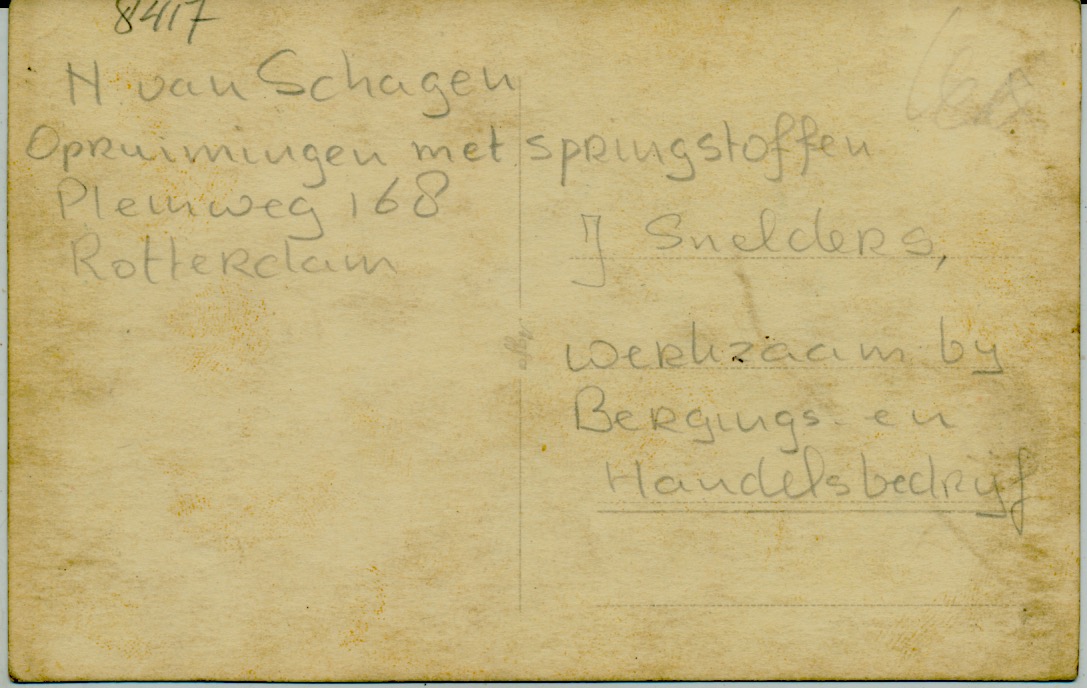 8417
N van Schagen
Opruimingen met springstoffen
Pleinweg 168
Rotterdam
J Snelders,
werkzaam by
Bergings- en
Handelsbedrijf